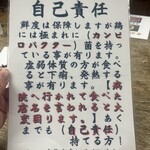 自己責任
鮮度は保障しますが鶏
には極まれに(カンピ
ロバクター)菌を持っ
ている事が有ります。
虚弱体質の方が食べ
ると下痢、発熱する
事が有ります。【病
院へ行かれて食べたと
店名を言われると大
変困ります。】あく
までも(自己責任)
持てる方！